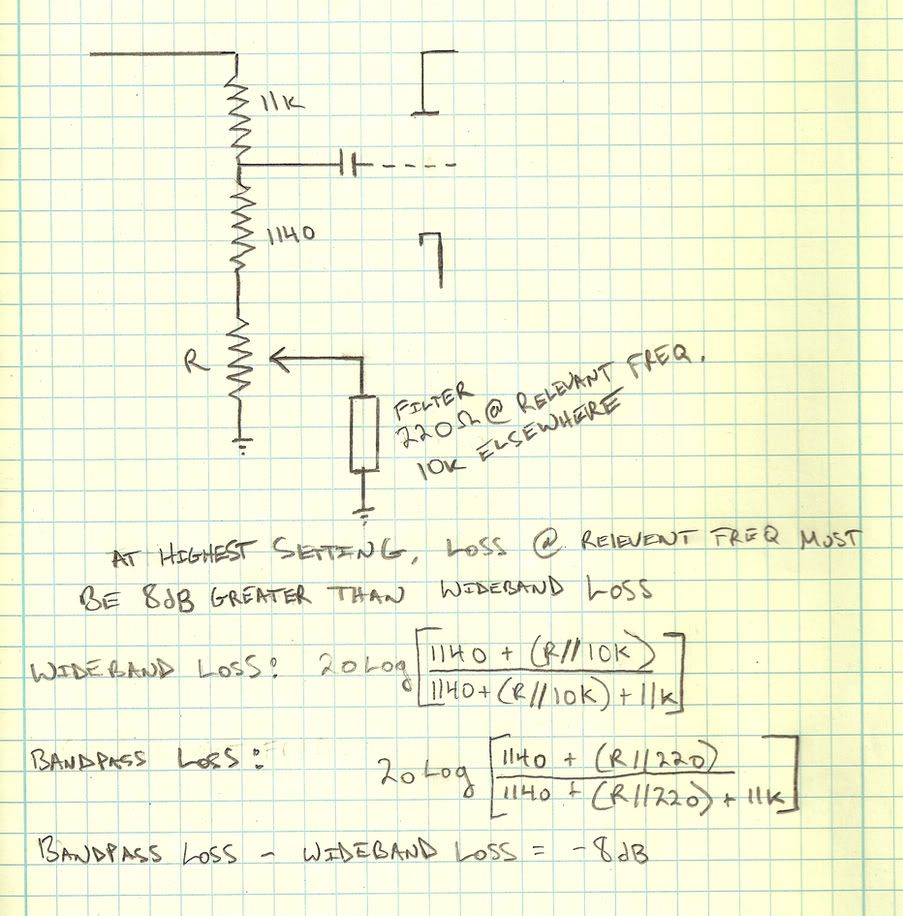 11K
1140
R
FILTER
220Ω @ RELEVANT FREQ.
10K ELSEWHERE
AT HIGHEST SETTING, LOSS @ RELEVENT FREQ MUST
BE 8dB GREATER THAN WIDEBAND LOSS
WIDEBAND LOSS: 20 LOG [1140 + (R//10K)
1140+(R//10K)+11K]
BANDPASS LOSS: 20 LOG [1140 + (R//220)
1140 + (R//220) + 11K]
BANDPASS LOSS - WIDEBAND LOSS = -8dB